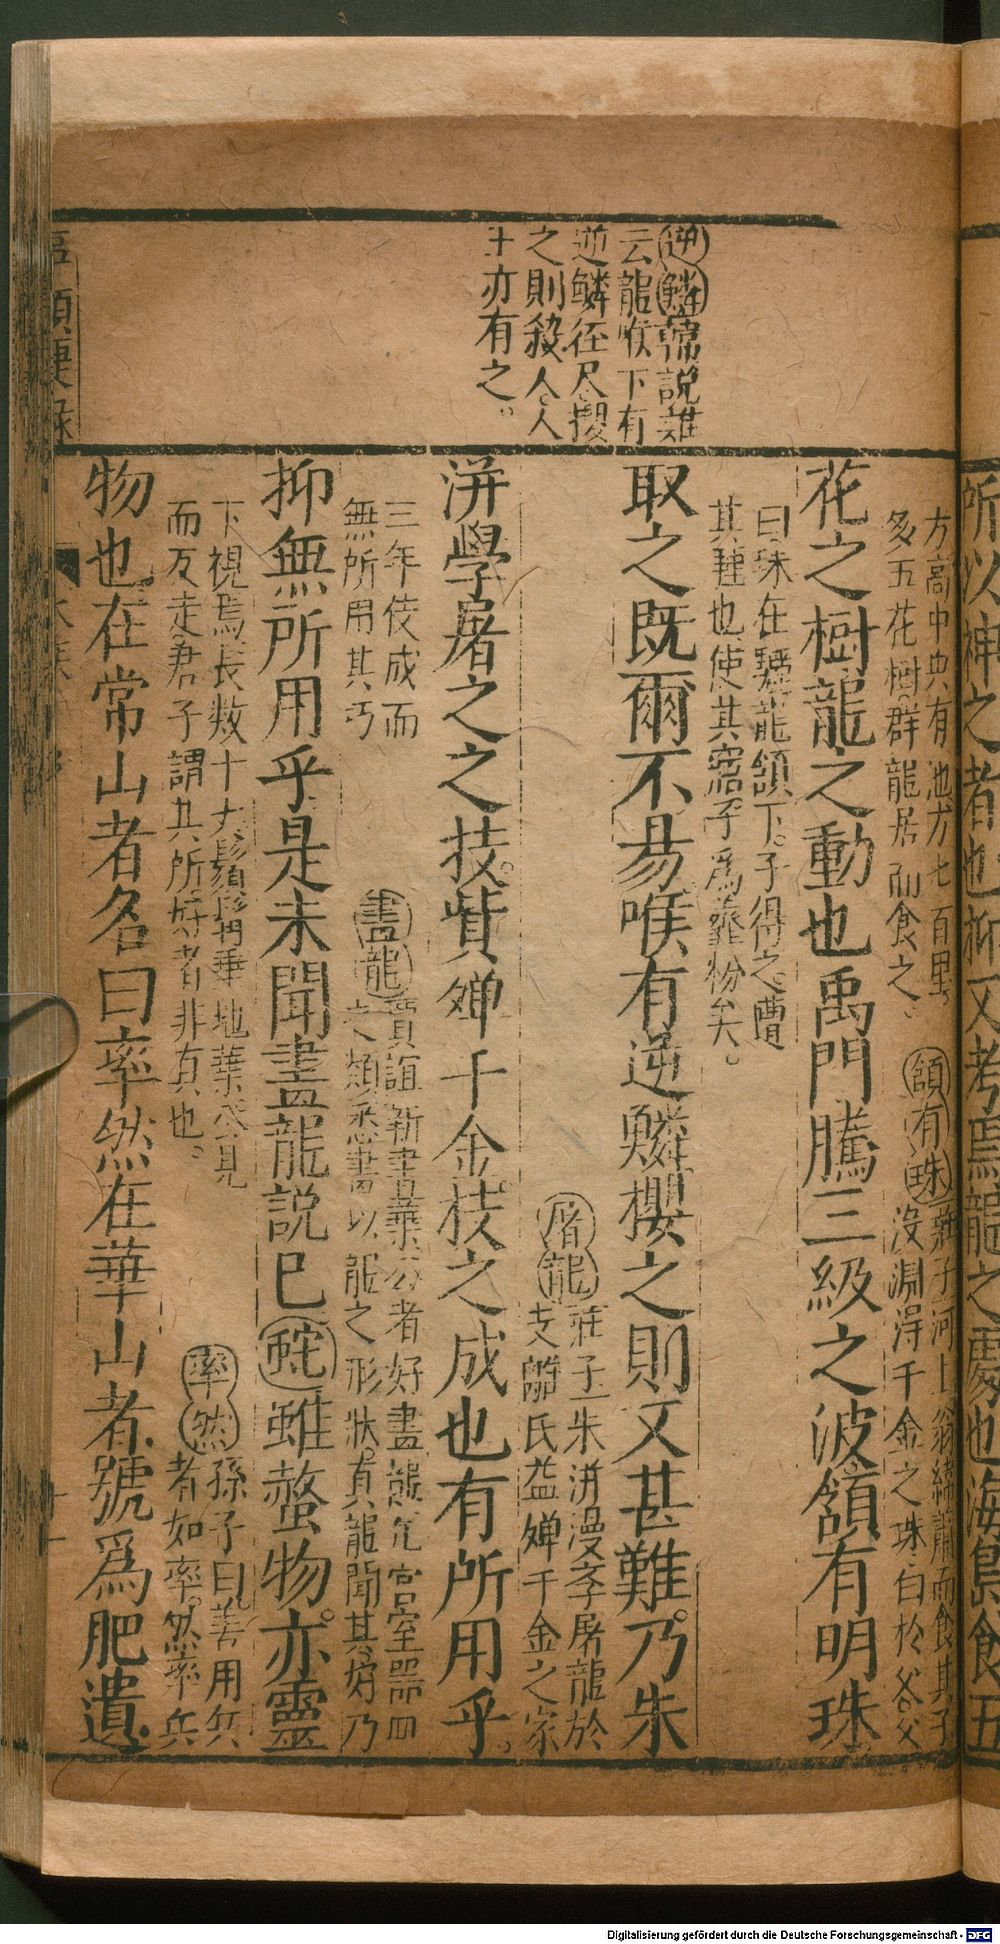 所以神之者也抑又考焉龍之?也海島食五
方高中央有池方七百里
多五花樹群龍居而食之。
頷有珠莊子河上翁緯蕭而食其子
沒淵淂千金之珠白於父父
花之樹龍之動也禹門騰三級之波頷有明珠
曰珠在驪龍頷下子得之遭
其睡也使其寤子為虀粉矣。
逆鱗韓說難
云龍喉下有
逆鱗徑尺攖
之則殺人人
主亦有之。
取之既爾不易喉有逆鱗攖之則又甚難乃朱
屠龍莊子朱泙漫李屠龍於
支離氏益殫千金之家
泙學屠之之技貲殫千金技之成也有所用乎
三年伎成而
無所用其巧
畫龍賈誼新書葉公者好畫龍凢宮室器皿
之類悉畫以龍之形狀真龍聞其好乃
抑無所用乎是未聞畫龍説巳蛇雖螫物亦靈
下視焉長数十丈鬚髯垂地葉公見
而反走君子謂其所好者非真也。
率然孫子曰善用兵
者如率然率兵
物也在常山者名曰率然在華山者號爲肥遺
Digitalisierung gefördert durch die Deutsche Forschungsgemeinschaft - DFG